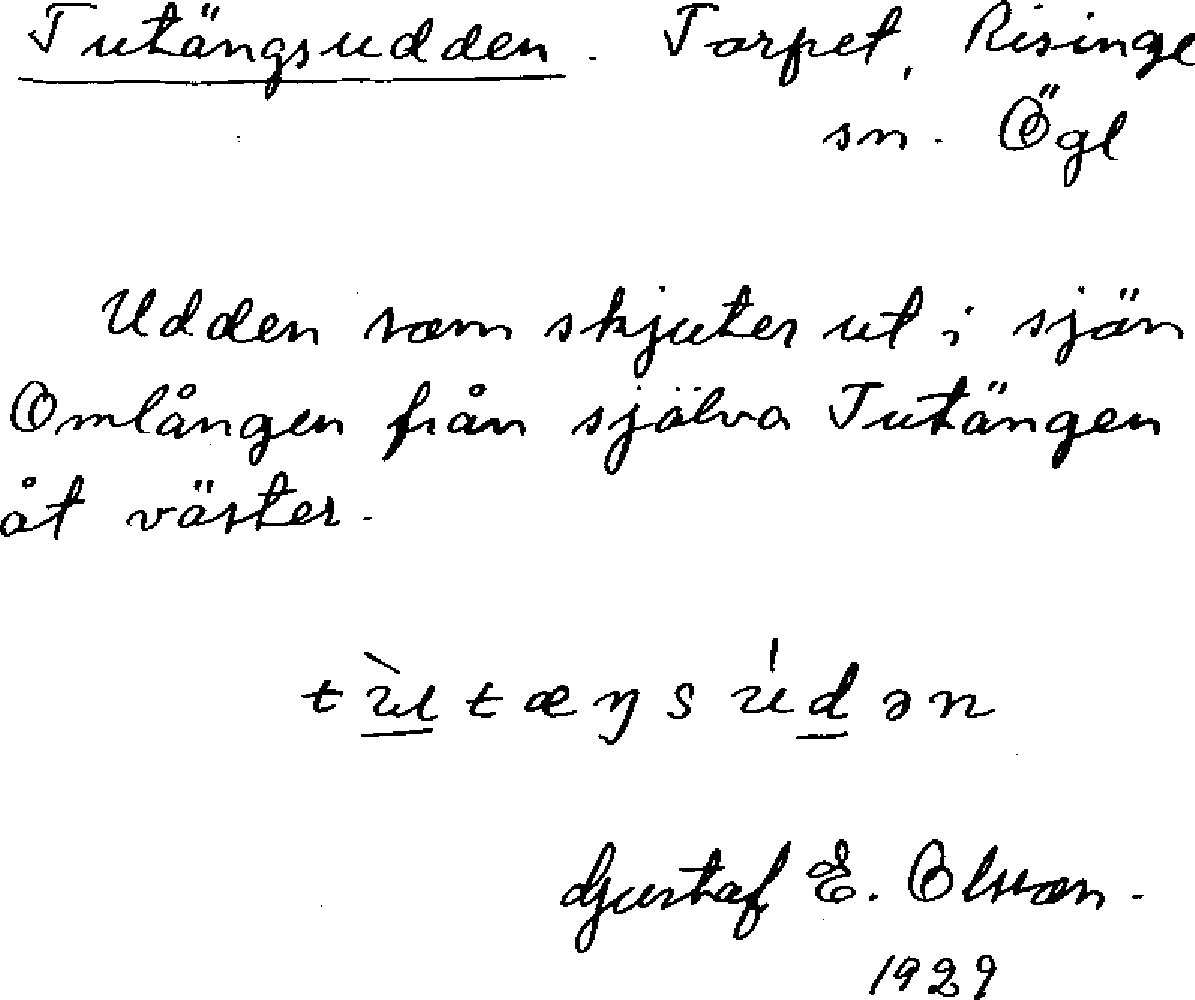 Tutängsudden. Torpet, Risinge
sn. Ögl
Udden som skjuter ut i sjön
Omlången från själva Tutängen
åt väster.
tùtæŋsúdən
Gustaf E. Olsson.
1929